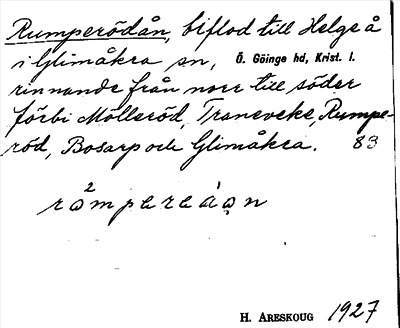 Rumperödån, biflod till Helgeå
i Glimåkra sn, Ö. Göinge hd, Krist. l.
rinnande från norr till söder
förbi Mölleröd, Traneveke, Rumpe-
röd, Bosarp och Glimåkra. 83
H. ARESKOUG 1927